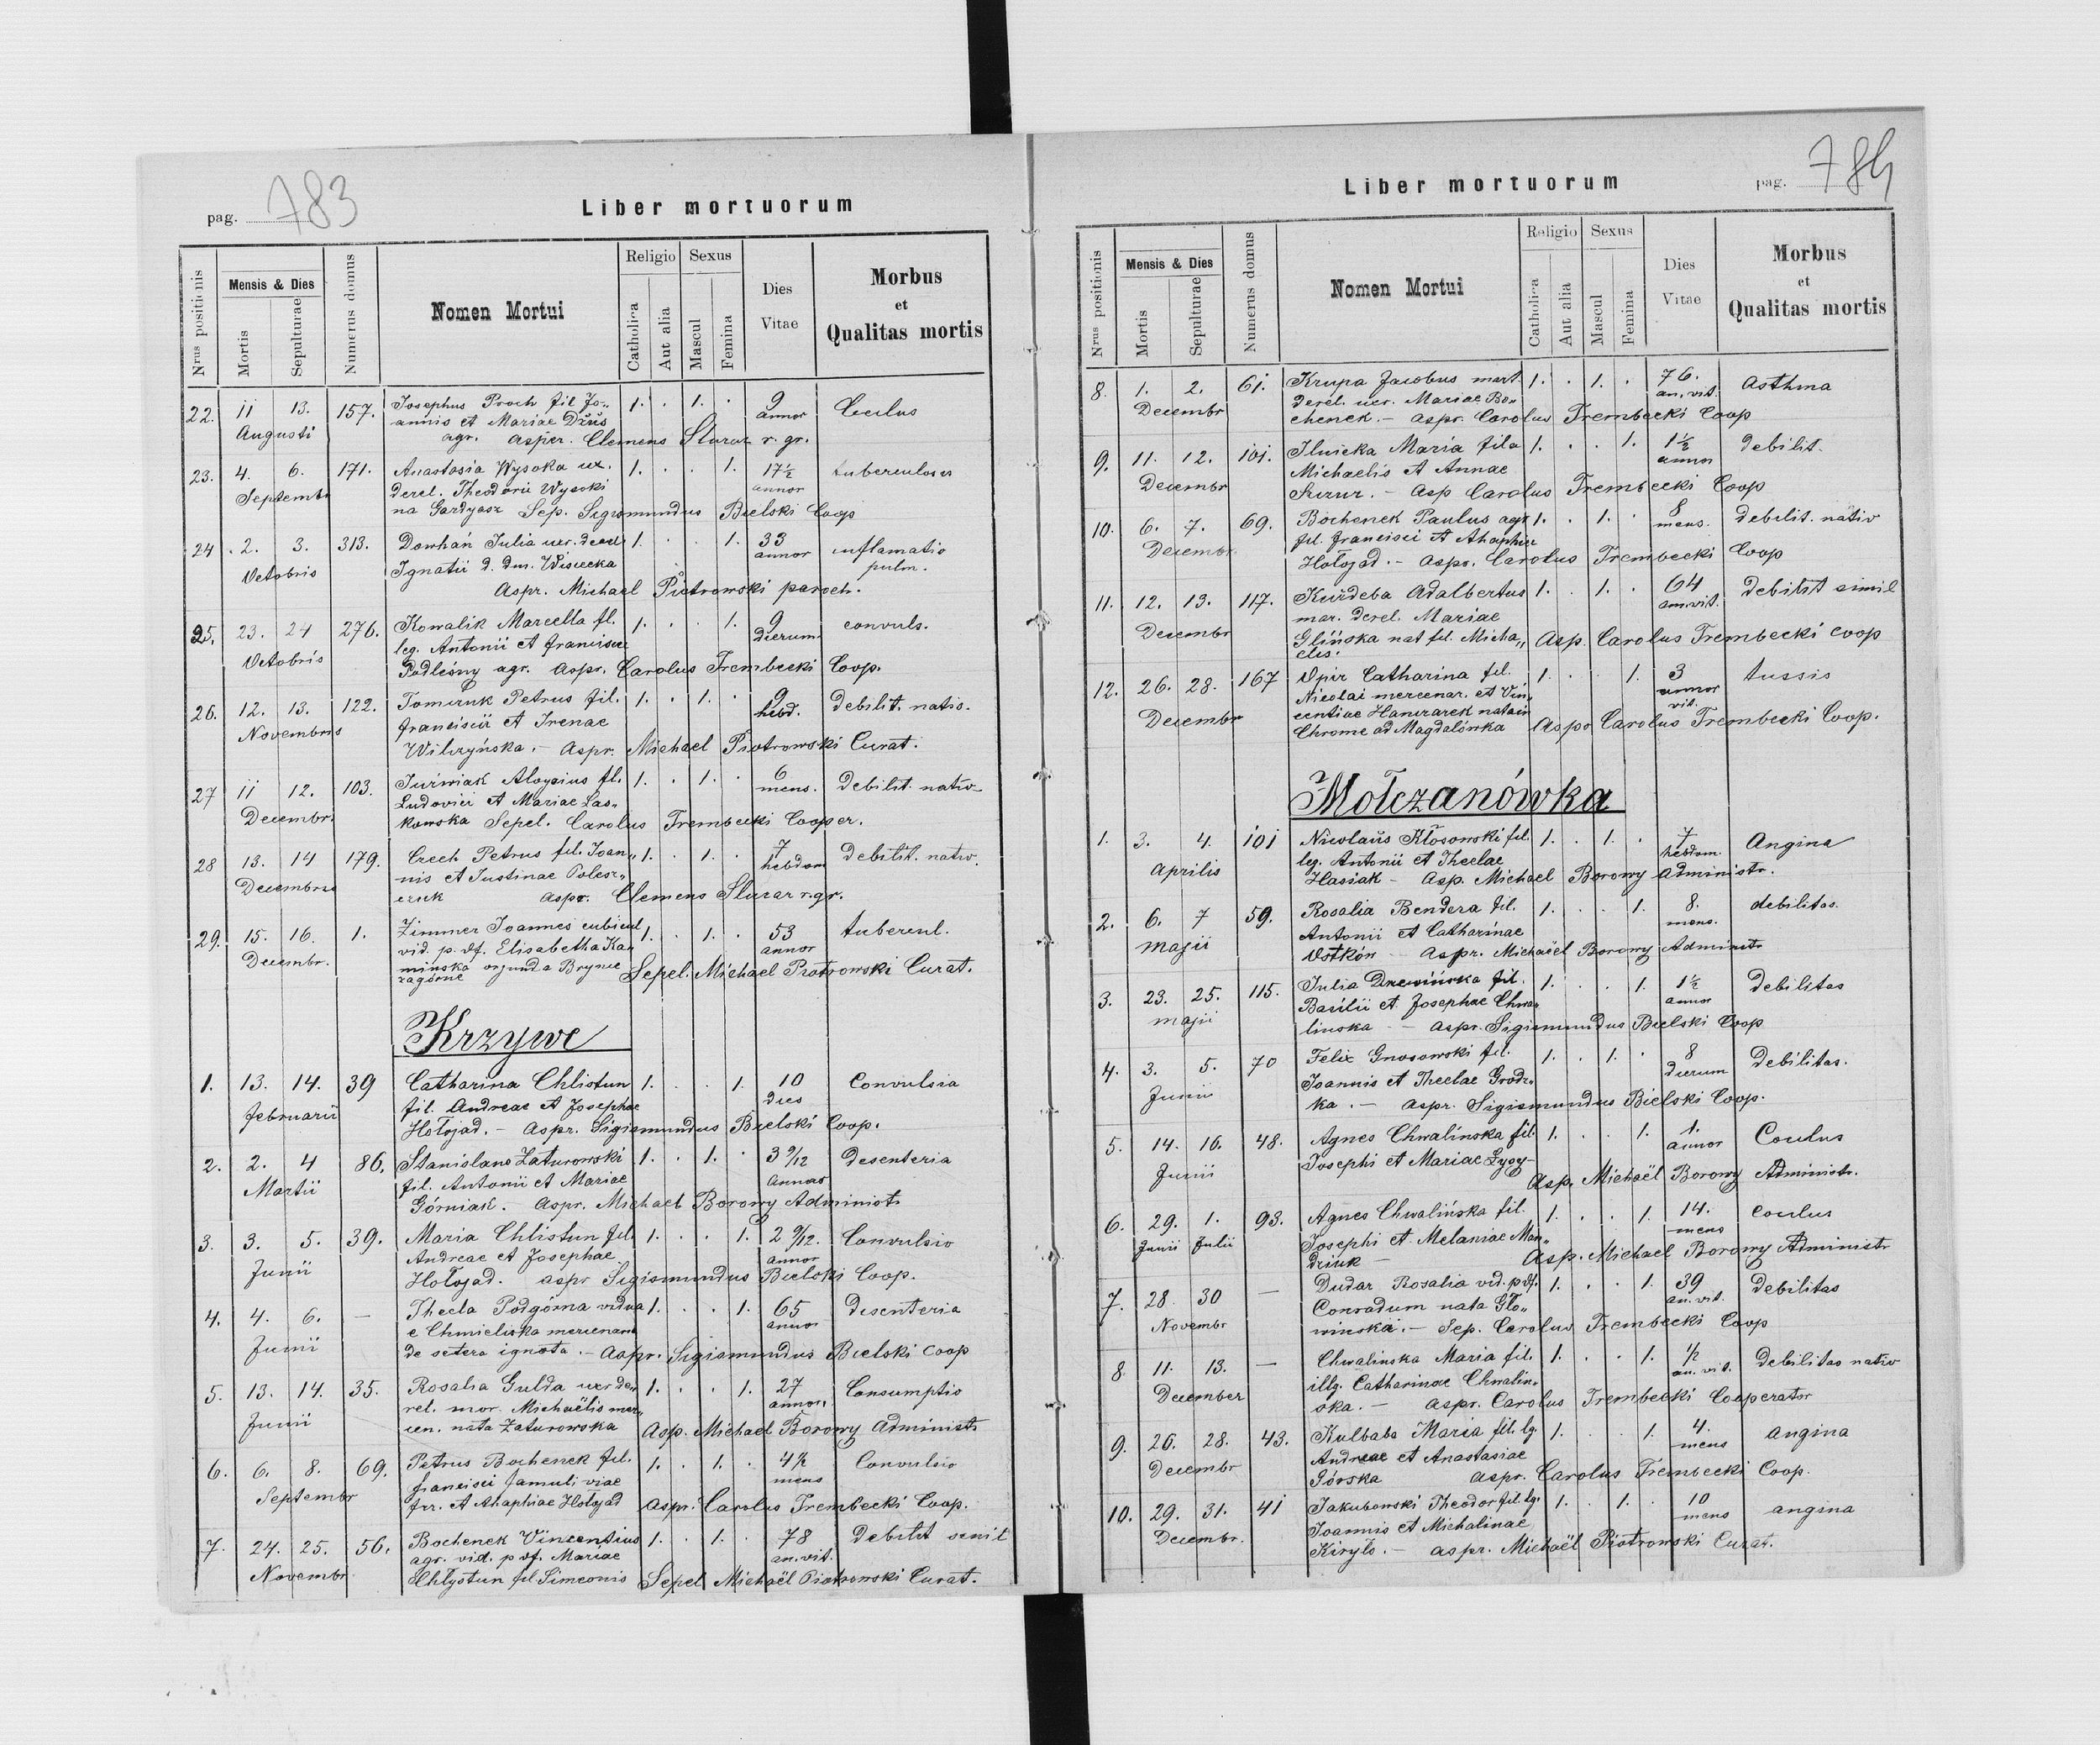 pag. 783
Liber mortuorum
Nrus positionis
Mensis & Dies
Mortis
Sepulturae
Numerus domus
Nomen Mortui
Religio
Catholica
Aut alia
Sexus
Mascul
Femina
Dies Vitae
Morbus
et
Qualitas mortis
22. 11 13. 157. Josephus Proch fil Jo„ 1. . 1. . 9
Augusti annis et Mariae Dżus annor
agr. asper. Clemens Sluzar r. gr.
23. 4. 6. 171. Anastasia Wysoka ux. 1. . . 1. 17½ tuberculosis
Septembr derel. Theodorii Wysocki annor
na Gardyasz Sep. Sigismundus Bielski Coop
24 . 2. 3. 313. Dowhań Julia uxr. 1. . . 1. 33 inflamatio
Octobris Ignatii annor pulm.
Aspr. Michael Piotrowski paroch.
25. 23. 24 276. Kowalik Marcella fl. 1. . . 1. 9 convuls.
Octobris leg. Antonii et Francisce dierum
Podleśny agr. Aspr. Carolus Trembecki Coop.
26. 12. 13. 122. Petrus fil. 1. . 1. . 9 debilit. nativ.
Novembris Francisci et Irenae hebd.
Wilczyńska. — Aspr. Michael Piotrowski Curat.
27 11 12. 103. Juźwiak Aloysius fl. 1. . 1. . 6 Debilit. nativ.
Decembr. Ludovici et Mariae Las„ mens.
kowska Sepel. Carolus Trembecki Cooper.
28 13. 14 179. Czech Petrus fil. Joan„ 1. . 1. . 7 Debilit. nativ.
Decembris nis et Justinae Polesz„ hebdom
czuk aspr. Clemens Sluzar r. gr.
29. 15. 16. 1. Zimmer Joannes cubicul 1. . 1. . 53 tubercul.
Decembr. vid. p. df. Elisabetha Ka„ annor
mińska orjunda Brynce
zagórne Sepel. Michael Piotrowski Curat.
Krzywe
1. 13. 14. 39 Catharina Chlistun 1. . . 1. 10 Convulsia
Februarii fil. Andreae et Josephae dies
Hołojad. — Aspr. Sigismundus Bielski Coop.
2. 2. 4 86. Stanislaus Zaturowski 1. . 1. . 3 9/12 Desenteria
Martii fil. Antonii et Mariae annor
Górniak. Aspr. Michael Borowy Administr
3. 3. 5. 39. Maria Chlistun fil. 1. . . 1. 2 9/12. Convulsio
Junii Andreae et Josephae annor
Hołojad. aspr Sigismundus Bielski Coop.
4. 4. 6. — Thecla Podgórna vidua 1. . . 1. 65 Desenteria
Junii e Chmieliska mercenar annor
de setera ignota. — Aspr. Sigismundus Bielski Coop
5. 13. 14. 35. Rosalia Gulda uxr de„ 1. . . 1. 27 Consumptio
Junii rel. mor. Michaëlis mer„ annor.
cen. nata Zaturowska Asp. Michael Borowy Administr
6. 6. 8. 69. Petrus Bochenek fil. 1. . 1. . 4½ Convulsio
Septembr Francisci famuli viae mens
frr. et Ahaphiae Hołojad Aspr. Carolus Trembecki Coop.
7. 24. 25. 56. Bochenek Vincentius 1. . 1. . 78 Debilit senil
Novembr agr. vid. p df. Mariae an. vit.
Chlystun fil Simeonis Sepel Michaël Piotrowski Curat.
pag. 784
Liber mortuorum
Nrus positionis
Mensis & Dies
Mortis
Sepulturae
Numerus domus
Nomen Mortui
Religio
Catholica
Aut alia
Sexus
Mascul
Femina
Dies Vitae
Morbus
et
Qualitas mortis
8. 1. 2. 61. Krupa Jacobus mart 1. . 1. . 76. Asthma
Decembr derel. uxr. Mariae Bo„ an. vit.
chenek. — aspr. Carolus Trembecki Coop
9. 11. 12. 101. Ilnicka Maria fila 1. . . 1. 1½ Debilit.
Decembr Michaelis et Annae annor
— Asp Carolus Trembecki Coop
10. 6. 7. 69. Bochenek Paulus agr 1. . 1. . 8 Debilit. nativ
Decembr. fil. Francisci et Ahaphiae mens.
Hołojad. — Aspr. Carolus Trembecki Coop
11. 12. 13. 117. Kuźdeba Adalbertus 1. . 1. . 64 Debilit sinil
Decembr mar. derel. Mariae an. vit.
Glińska nat fil. Micha„ Asp. Carolus Trembecki Coop
elis.
12. 26. 28. 167 Opir Catharina fil. 1. . . 1. 3 tussis
Nicolai mercenar. et Vin„ annor
Decembr centiae Hanczarek nata in vit.
Chrome ad Magdalówka Aspr Carolus Trembecki Coop.
Mołczanówka
1. 3. 4. 101 Nicolaüs Kłosowski fil. 1. . 1. . 7 Angina
Aprilis leg. Antonii et Theclae hebdom.
Hasiak — Asp. Michael Borowy Administr.
2. 6. 7 59. Rosalia Bendera fil. 1. . . 1. 8. debilitas.
Majii Antonii et Catharinae mens.
— Aspr. Michaël Borowy Administr
3. 23. 25. 115. Julia Drewińska fil. 1. . . 1. 1½ Debilitas
Majii Basilii et Josephae Chwa„ annor
linska — Aspr. Sigismundus Bielski Coop
4. 3. 5. 70 Felix Gnosowski fil. 1. . 1. . 8 Debilitas.
Junii Joannis et Theclae Grodz„ dierum
ka. — Aspr. Sigismundus Bielski Coop.
5. 14. 16. 48. Agnes Chwalinska fil. 1. . . 1. 1. Coculus
Junii Josephi et Mariae Łysy— annor
Asp. Michaël Borowy Administr.
6. 29. 1. 93. Agnes Chwalińska fil. 1. . . 1. 14. coculus
Junii Julii Josephi et Melaniae Man„ mens
dziuk — Asp. Michael Borowy Administr
7. 28 30 — Dudar Rosalia vid. p df. 1. . . 1. 39 Debilitas
Novembr Conradum nata Gło„ an. vit.
winska. — Sep. Carolus Trembecki Coop
8 11. 13. — Chwalinska Maria fil. 1. . . 1. ½ Debilitas nativ
December illg. Catharinae Chwalin„ an. vit.
ska. — Aspr. Carolus Trembecki Cooperator
9. 26. 28. 43. Kulbaba Maria fil. lg. 1. . . 1. 4. angina
Decembr Andreae et Anastasiae mens
Górska aspr. Carolus Trembecki Coop.
10. 29. 31. 41 Jakubowski Theodor fil. lg. 1. . 1. . 10 angina
Decembr. Joannis et Michalinae mens
Kiryło. — aspr. Michaël Piotrowski Curat.